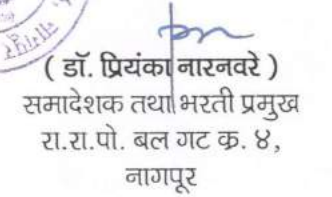 ( डॉ. प्रियंका नारनवरे )
समादेशक तथा भरती प्रमुख
रा.रा.पो. बल गट क्र. ४,
नागपूर